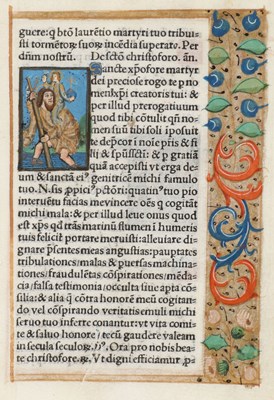 guere: q̃ bt̃o laurẽtio martyri tuo tribui
sti tormẽtoꝝ suoꝝ incẽdia superare. Per
dñm nostrũ. De sct̃o christoforo. añ.
Sancte xp̃ofore martyr
dei preciose rogo te p no
menxp̃i creatoris tui: &
per illud prerogatiuum
quod tibi cõtulit qñ no-
men suũ tibi soli iposuit
te dep̃cor i noĩe pris & fi
lii & sp̃ussct̃i: & p gratiã
quã accepisti vt erga de
um & sanctã eiꝰ genitricẽ michi famulo
tuo. N. sis ꝓpiciꝰ pctõri: quatinꝰ tuo pio
interuẽtu facias meuincere oẽs q̃ cogitãt
michi mala: & per illud leue onus quod
est xp̃s qd̃ trãs marinũ flumen i humeris
tuis felicit̃ portare meruisti: alleuiare dig
nare p̃sentes meas angustias: paupates
tribulationes/malas & puersas machina
tiones/fraudulẽtas cõspirationes/mẽda
cia/falsa testimonia/occulta siue apta cõ
silia: & alia q̃ cõtra honorẽ meũ cogitan-
do vel cõspirando veritatis emuli michi
seruo tuo inferre conantur: vt vita comi
te & saluo honore/tecũ gaudere valeam
in secula seculoꝝ. Ora pro nobis bea
te christofore. Vt digni efficiamur